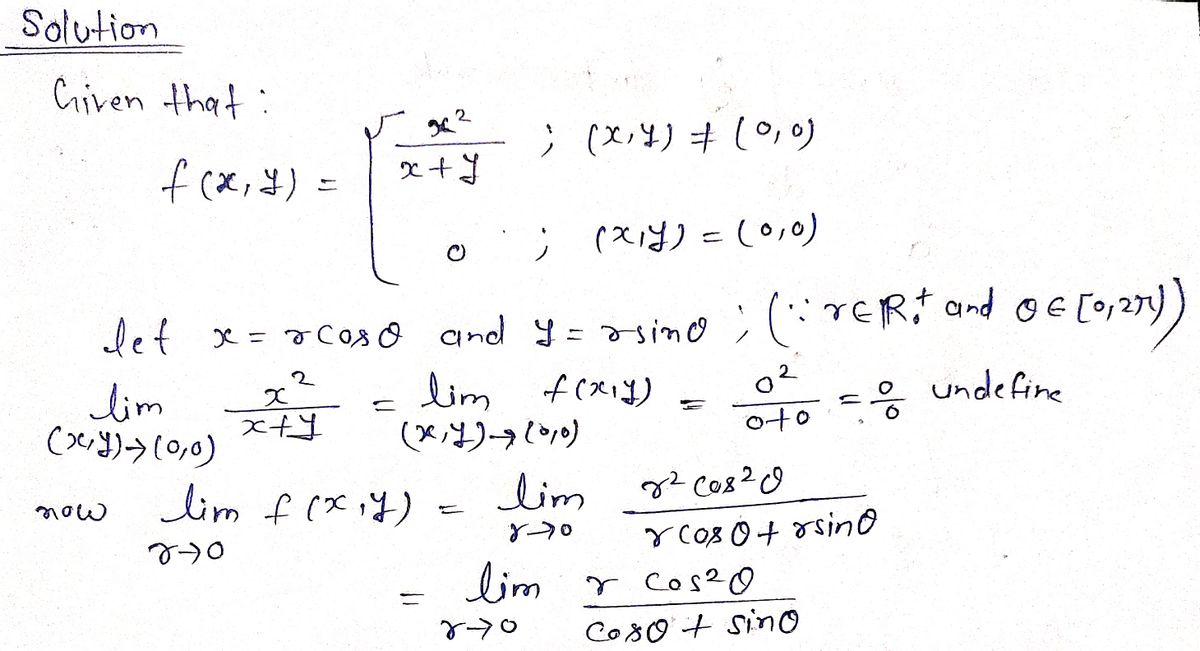 Solution
Given that :
f(x,y) = { x² / (x+y) ; (x,y) ≠ (0,0)
0 ; (x,y) = (0,0)
let x = r cosθ and y = r sinθ ; (∵ r ∈ ℝ⁺ and θ ∈ [0,2π))
lim (x,y)→(0,0) x² / (x+y) = lim (x,y)→(0,0) f(x,y) = 0² / (0+0) = 0/0 undefine
now lim r→0 f(x,y) = lim r→0 r² cos²θ / (r cosθ + r sinθ)
= lim r→0 r cos²θ / (cosθ + sinθ)